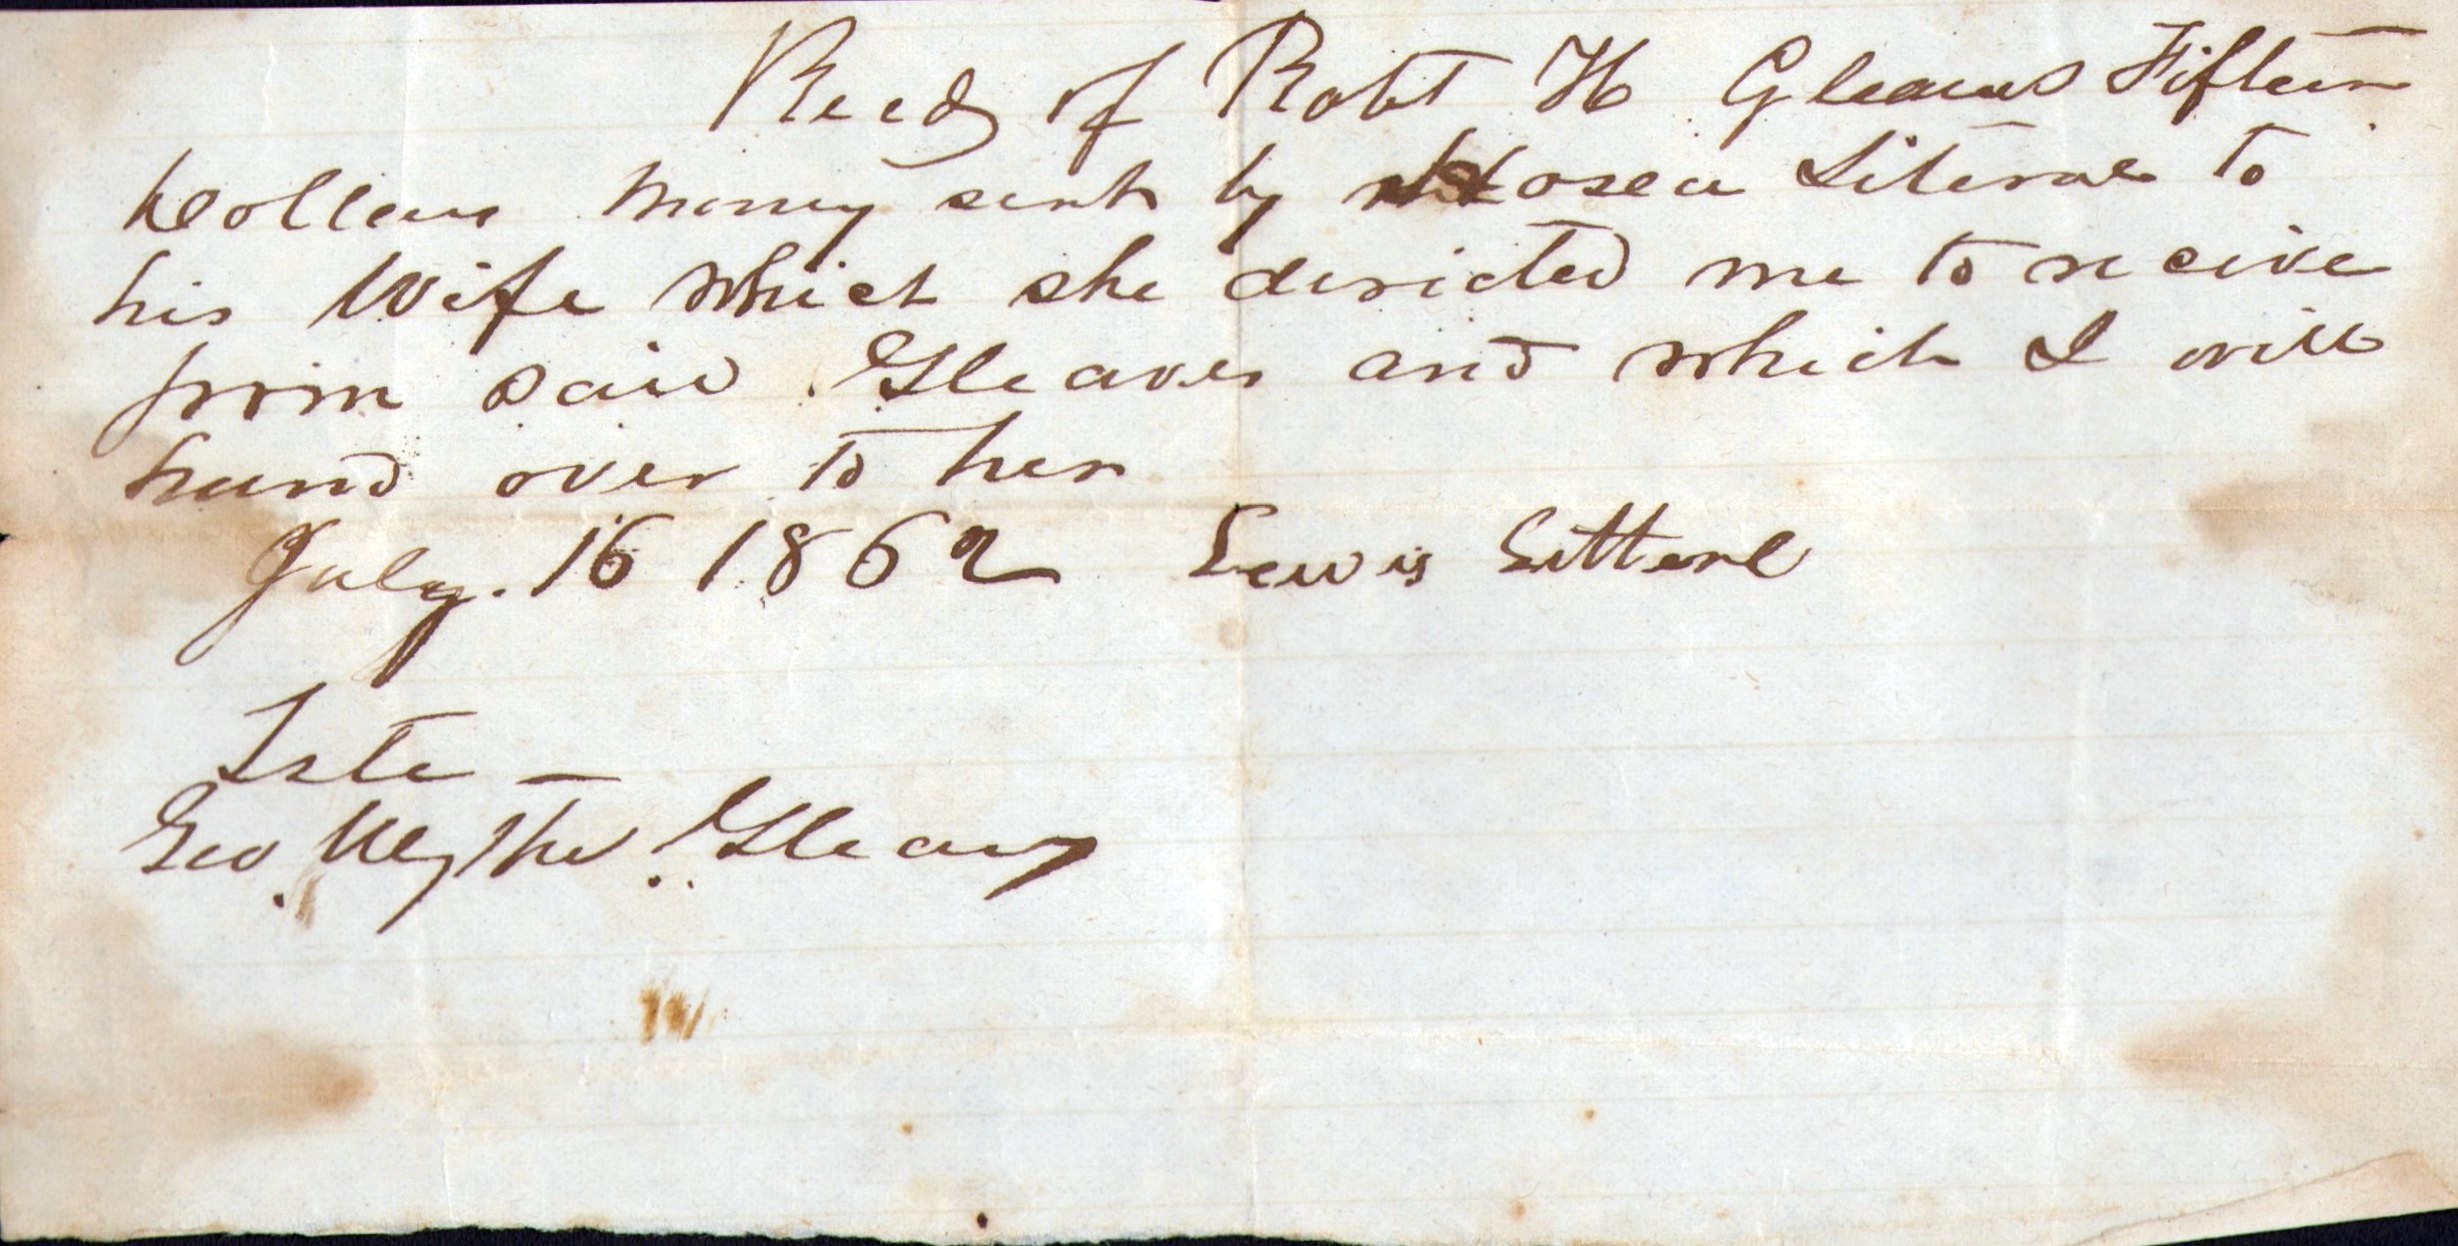 Recd of Robt H Gleaves Fifteen
dollars money sent by Hosea Literal to
his Wife which she dericted me to receive
from said Gleaves and which I will
hand over to her
July. 16 1862 Lewis Litterl
Teste —
Geo. Wythe Gleaves